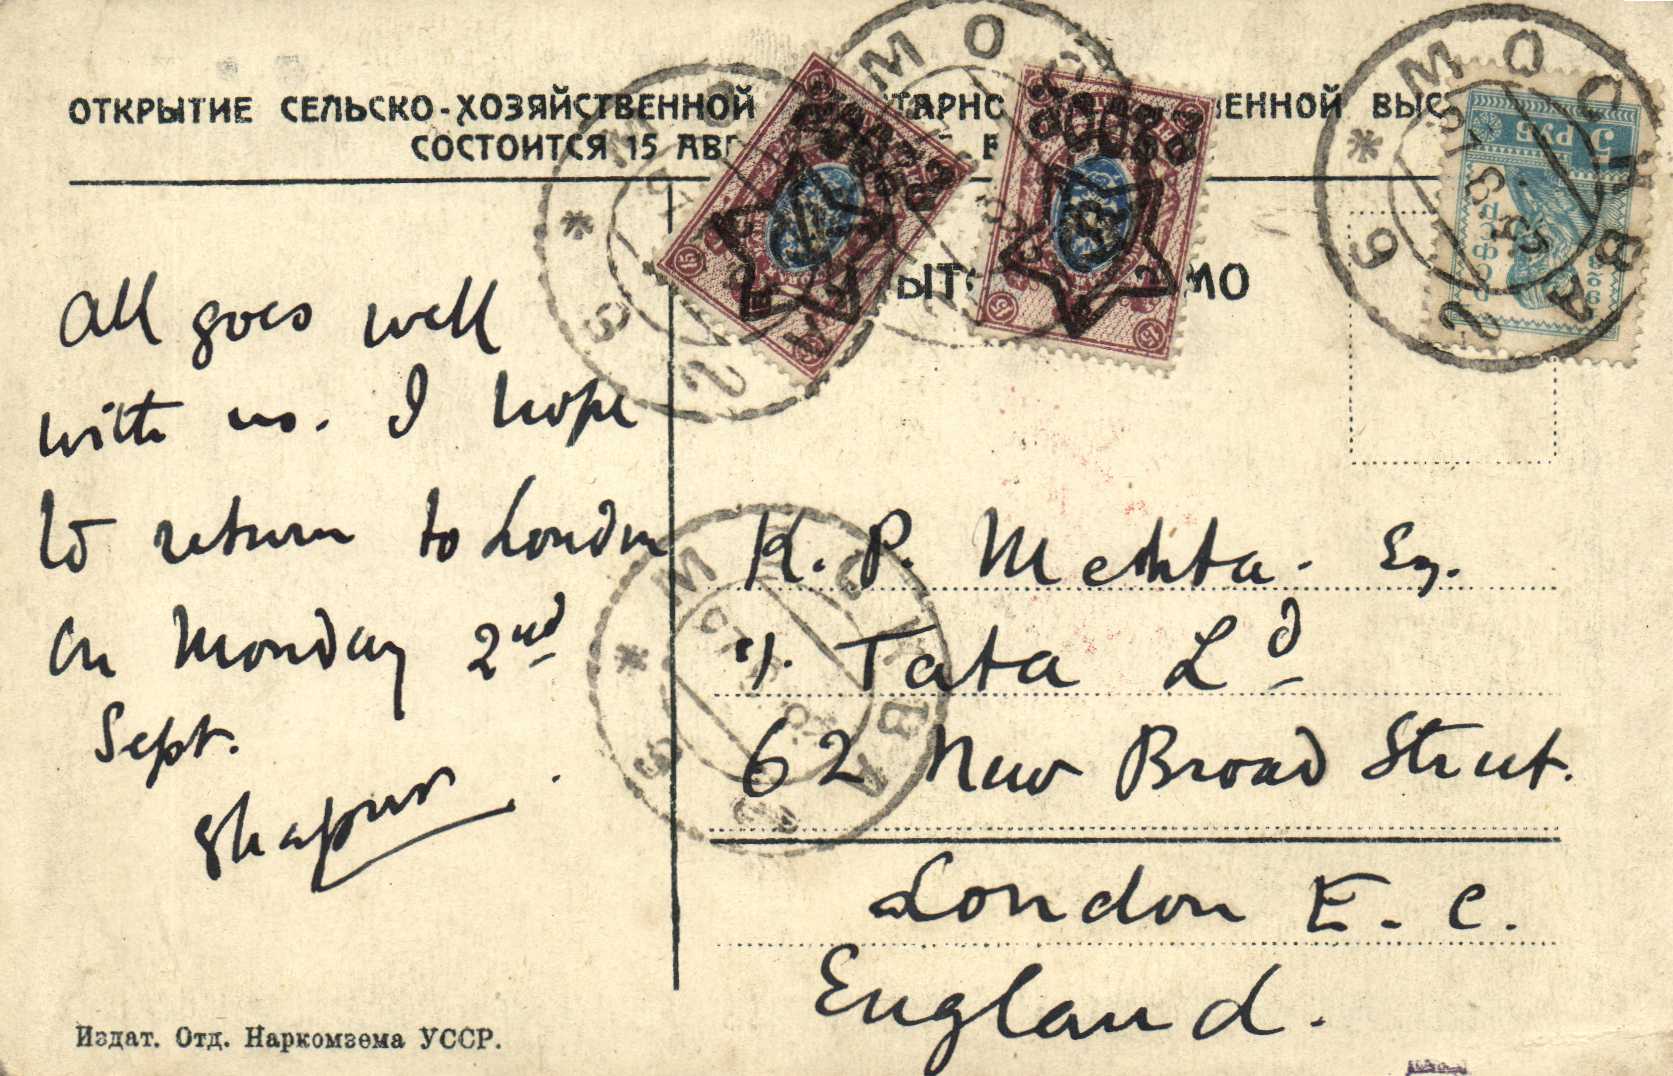 ОТКРЫТИЕ СЕЛЬСКО-ХОЗЯЙСТВЕННОЙ
СОСТОИТСЯ 15 АВГ
All goes well
with us. I hope
to return to London
on Monday 2nd
Sept.
Shapur
K. P. Mehta. Esq.
Tata Ld
62 New Broad Street.
London E. C.
England.
Издат. Отд. Наркомзема УССР.
МОСКВА
МОСКВА
5 РУБ